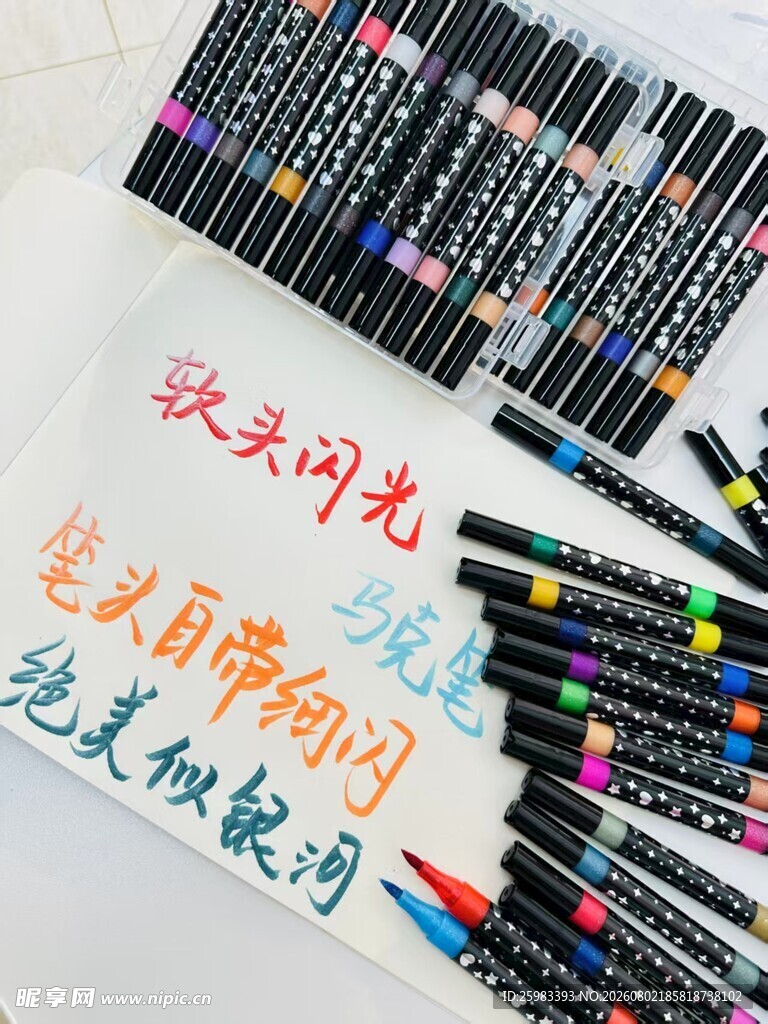 软头闪光
马克笔
笔头自带细闪
绝美似银河
昵享网 www.nipic.cn
ID:25983393 NO:20260802185818738102